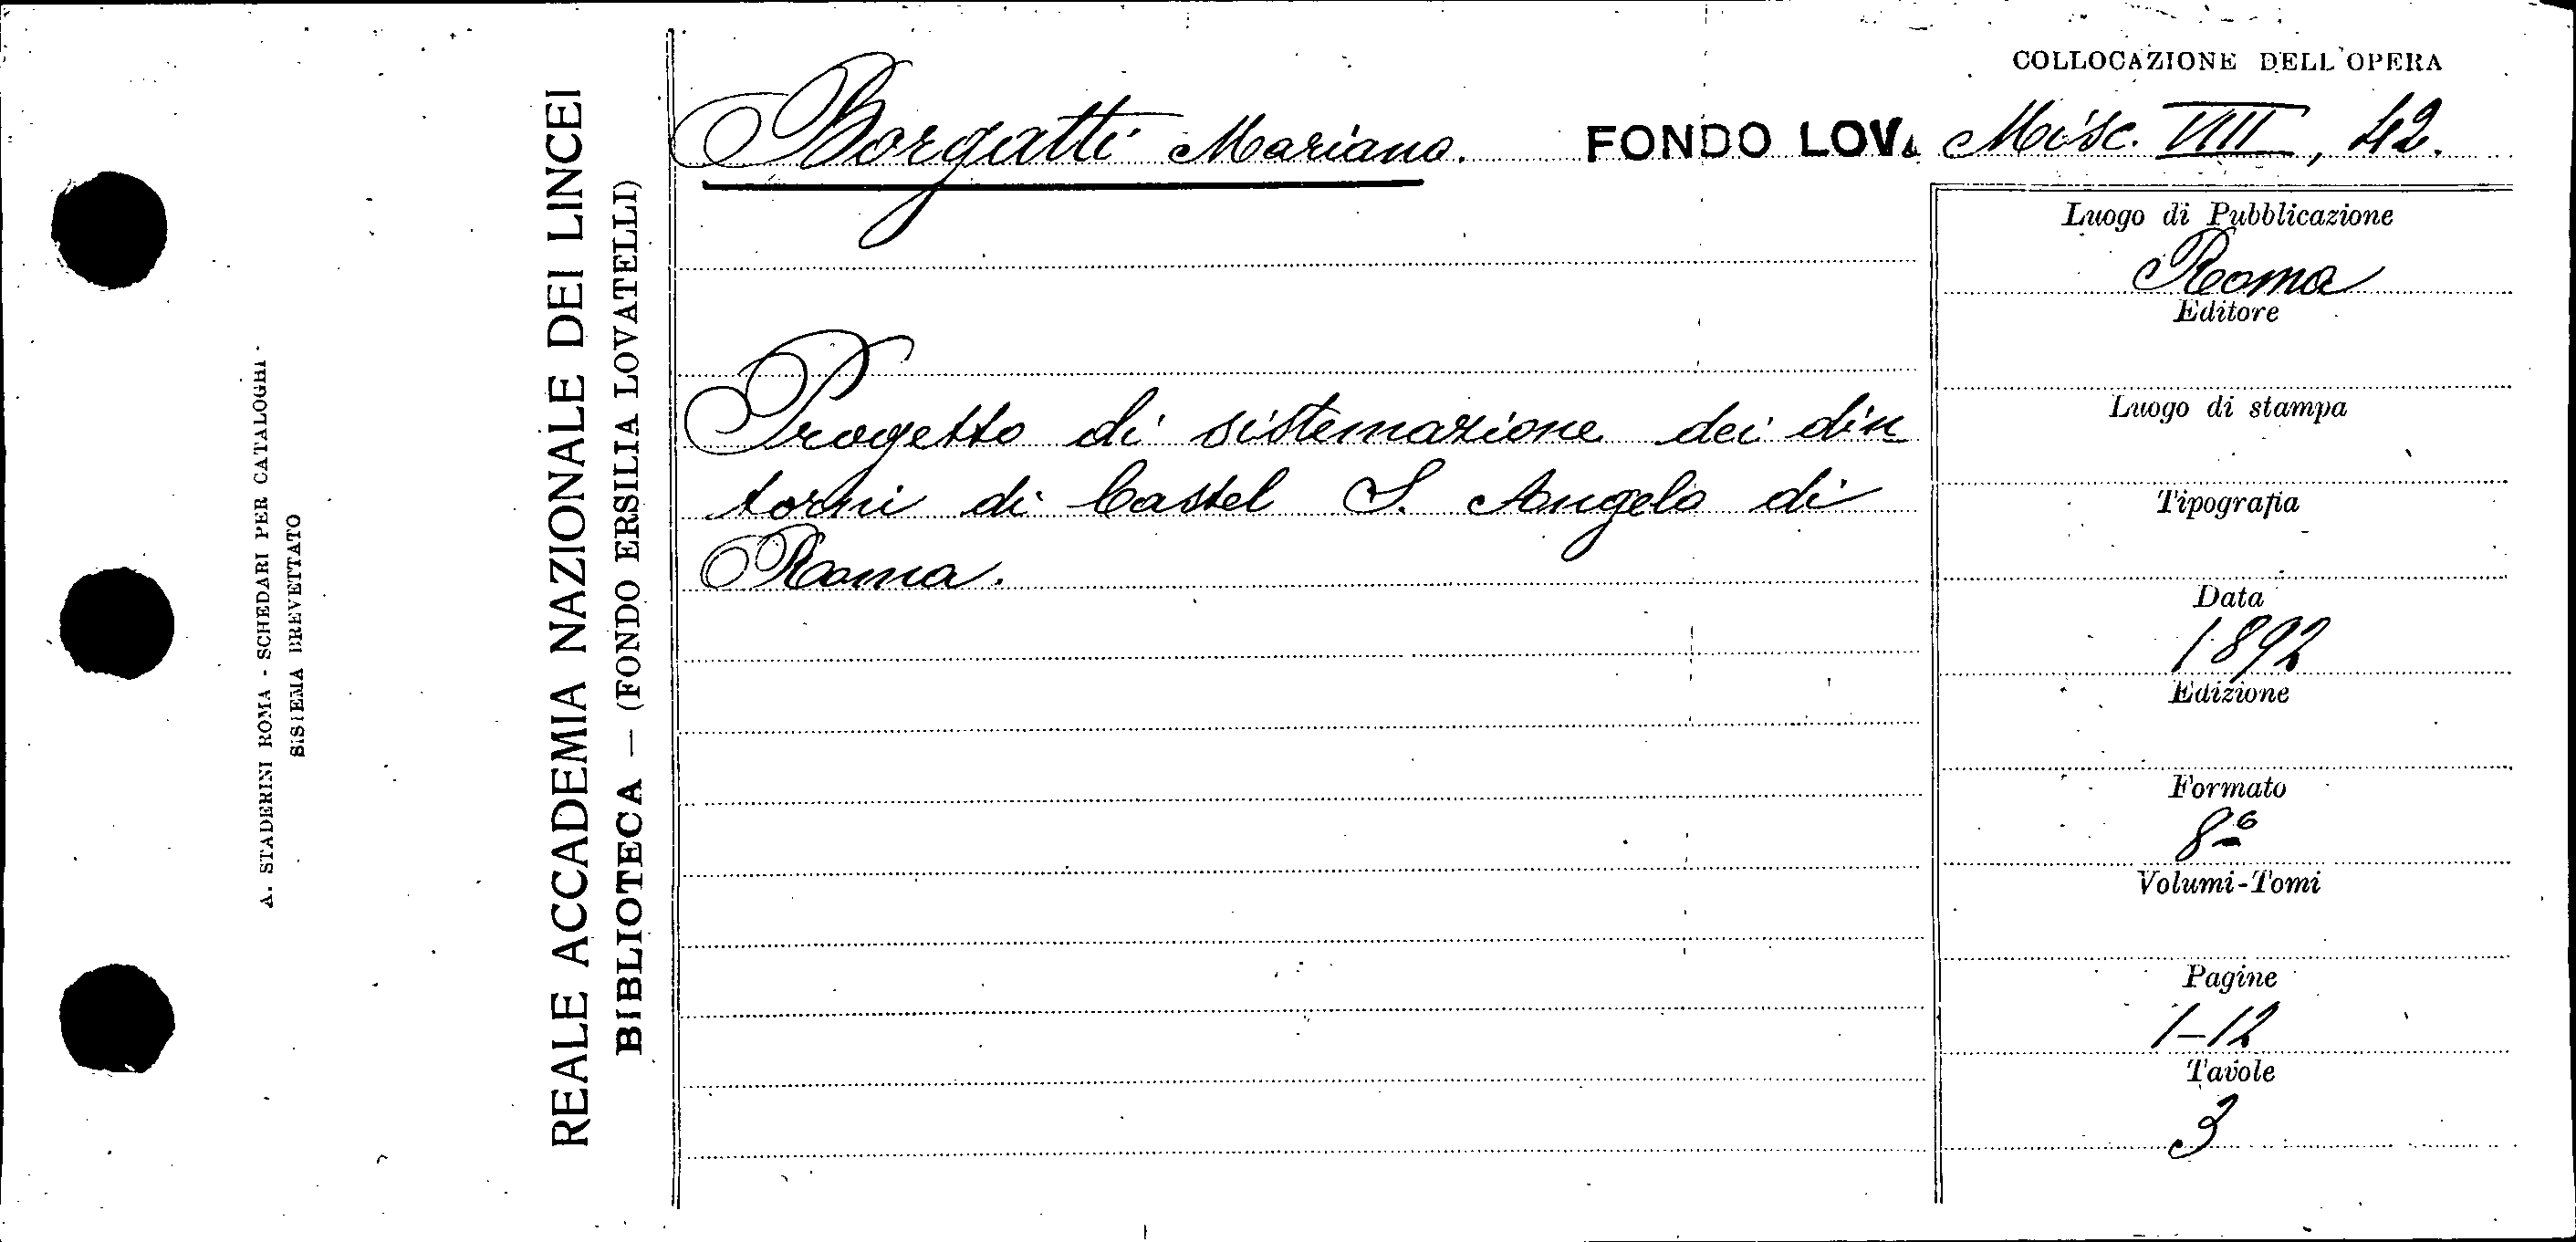 A. STADERINI ROMA - SCHEDARI PER CATALOGHI
SISTEMA BREVETTATO
REALE ACCADEMIA NAZIONALE DEI LINCEI
BIBLIOTECA — (FONDO ERSILIA LOVATELLI)
COLLOCAZIONE DELL'OPERA
Borgatti Mariano. FONDO LOV. Misc. VIII, 42.
Progetto di sistemazione dei din
torni di Castel S. Angelo di
Roma.
Luogo di Pubblicazione
Roma
Editore
Luogo di stampa
Tipografia
Data
1892
Edizione
Formato
8º
Volumi-Tomi
Pagine
1-12
Tavole
3